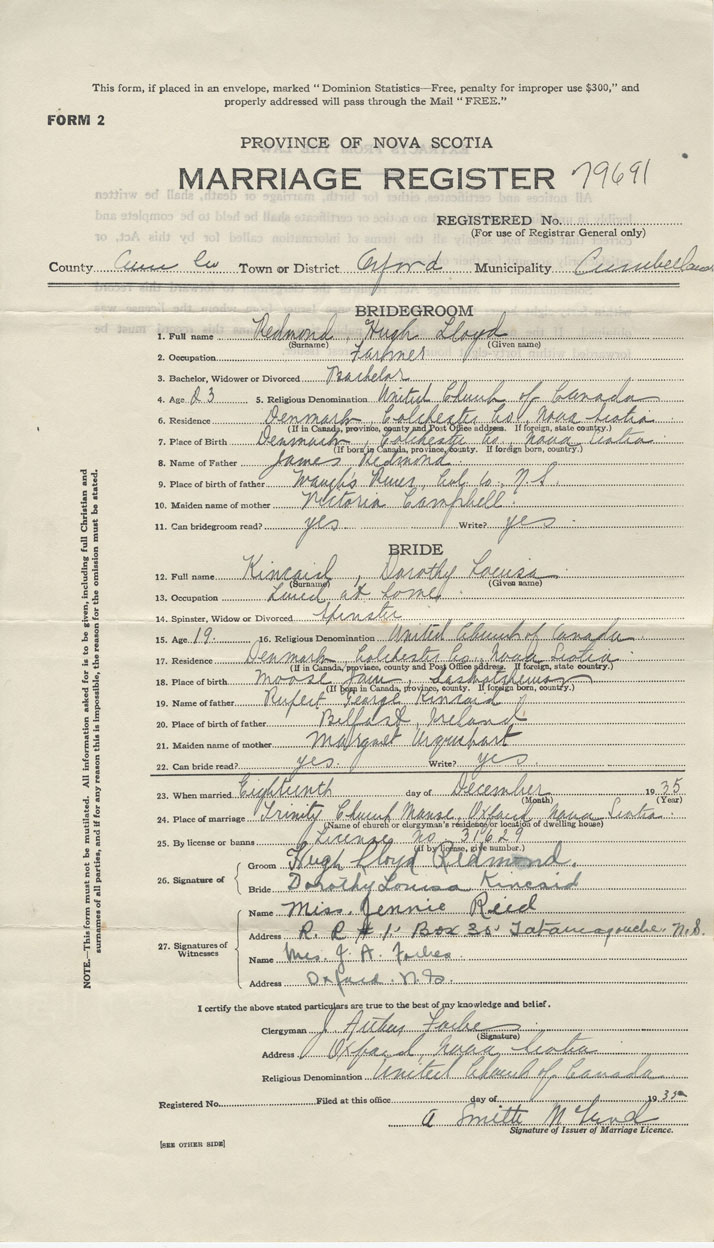 This form, if placed in an envelope, marked "Dominion Statistics—Free, penalty for improper use $300," and
properly addressed will pass through the Mail "FREE."
FORM 2
PROVINCE OF NOVA SCOTIA
MARRIAGE REGISTER 79691
REGISTERED No.
(For use of Registrar General only)
County Town or District Oxford Municipality Cumberland
BRIDEGROOM
1. Full name Redmond, Hugh Lloyd
(Surname) (Given name)
2. Occupation Farmer
3. Bachelor, Widower or Divorced Bachelor
4. Age 23 5. Religious Denomination United Church of Canada
6. Residence Denmark, Colchester Co., Nova Scotia
(If in Canada, province, county and Post Office address. If foreign, state country.)
7. Place of Birth Denmark, Colchester Co., Nova Scotia
(If born in Canada, province, county. If foreign born, country.)
8. Name of Father James Redmond
9. Place of birth of father Waugh's River, Col. Co., N.S.
10. Maiden name of mother Victoria Campbell
11. Can bridegroom read? yes Write? yes
BRIDE
12. Full name Kincaid, Dorothy Louisa
(Surname) (Given name)
13. Occupation Lived at home
14. Spinster, Widow or Divorced Spinster
15. Age 19 16. Religious Denomination United Church of Canada
17. Residence Denmark, Colchester Co., Nova Scotia
(If in Canada, province, county and Post Office address. If foreign, state country.)
18. Place of birth Moose Jaw, Saskatchewan
(If born in Canada, province, county. If foreign born, country.)
19. Name of father Rupert George Kincaid
20. Place of birth of father Belfast, Ireland
21. Maiden name of mother Margaret Urquhart
22. Can bride read? yes. Write? yes
23. When married Eighteenth day of December 1935
(Month) (Year)
24. Place of marriage Trinity Church Manse, Oxford, Nova Scotia
(Name of church or clergyman's residence or location of dwelling house)
25. By license or banns License no 31629
(If by license, give number.)
26. Signature of
Groom Hugh Lloyd Redmond.
Bride Dorothy Louisa Kincaid
27. Signatures of Witnesses
Name Miss. Jennie Reid
Address R. R # 1. Box 35 Tatamagouche. N.S.
Name Mrs. J. A. Forbes
Address Oxford. N.S.
I certify the above stated particulars are true to the best of my knowledge and belief.
Clergyman J. Arthur Forbes
(Signature)
Address Oxford, Nova Scotia
Religious Denomination United Church of Canada
Registered No. Filed at this office day of 1935
A Smith
Signature of Issuer of Marriage Licence.
[SEE OTHER SIDE]
NOTE.—This form must not be mutilated. All information asked for is to be given, including full Christian and
surnames of all parties, and if for any reason this is impossible, the reason for the omission must be stated.